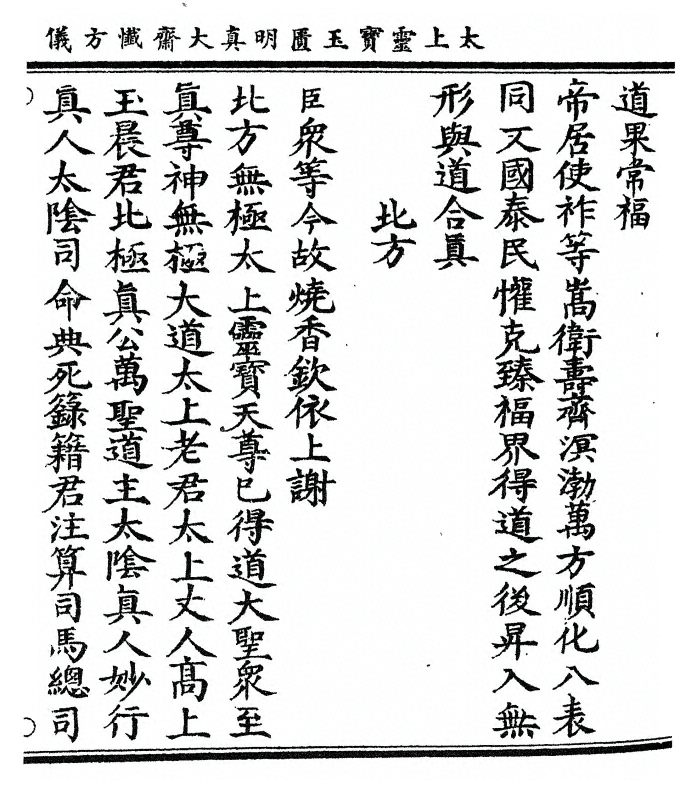 太上靈寶玉匱明真大齋懺方儀
道果常福
帝居使祚等嵩衛壽齊溟渤萬方順化八表
同文國泰民懽克臻福界得道之後昇入無
形與道合真
北方
臣衆等今故燒香欽依上謝
北方無極太上靈寶天尊已得道大聖衆至
真尊神無極大道太上老君太上丈人高上
玉晨君北極真公萬聖道主太陰真人妙行
真人太陰司命典死籙籍君注算司馬總司